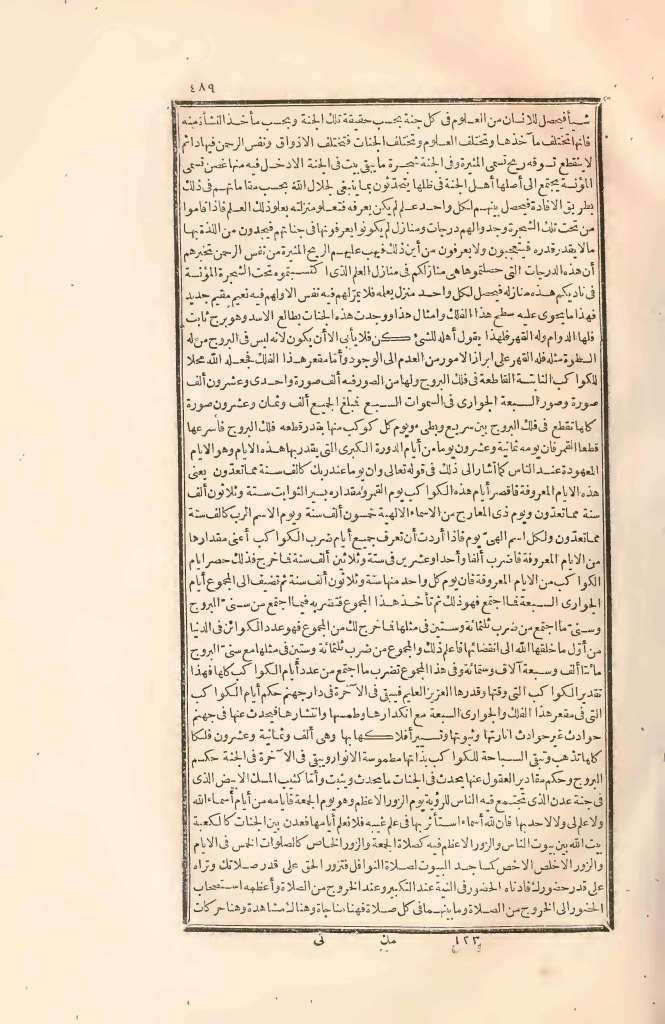 ٤٨٩
شيأ فيحصل للانسان من العلوم في كل جنة بحسب حقيقة تلك الجنة وبحسب مأخذ النشأة منه
فانها تختلف مآخذها وتختلف العلوم وتختلف الجنات فتختلف الاذواق ونفس الرحمن فيها دائم
لا ينقطع تسوقه ريح تسمى المثيرة وفي الجنة شجرة ما يبقى بيت في الجنة الا دخل فيه منها غصن تسمى
المؤنسة يجتمع الى أصلها أهل الجنة في ظلها فيتحدثون بما ينبغي لجلال الله بحسب مقاماتهم في ذلك
بطريق الافادة فيحصل بينهم لكل واحد علم لم يكن يعرفه فتعلو منزلته بعلو ذلك العلم فاذا قاموا
من تحت تلك الشجرة وجدوا لهم درجات ومنازل لم يكونوا يعرفونها في جناتهم فيجدون من اللذة بها
ما لا يقدر قدره فيتعجبون ولا يعرفون من أين ذلك فيهب عليهم الريح المثيرة من نفس الرحمن تخبرهم
أن هذه الدرجات التي حصلتموها هي منازلكم في منازل العلم الذي اكتسبتموه تحت الشجرة المؤنسة
في ناديكم هذه منازله فيحصل لكل واحد منزل بعلمه فلا يمر لهم فيه نفس الا ولهم فيه نعيم مقيم جديد
فهذا ما يحوي عليه سطح هذا الفلك وامثال هذا ووجدت هذه الجنات بطالع الاسد وهو برج ثابت
فلها الدوام وله القهر فلهذا يقول أهله للشئ كن فلا يأبى الا أن يكون لانه ليس في البروج من له
السطوة مثله فله القهر على ابراز الامور من العدم الى الوجود وأما مقعر هذا الفلك فجعله الله محلا
للكواكب الثابتة القاطعة في فلك البروج ولها من الصور فيه ألف صورة واحدى وعشرون ألف
صورة وصور السبعة الجواري في السموات السبع تبلغ الجميع ألف وثمان وعشرون صورة
كلها تقطع في فلك البروج بين سريع وبطيء ويوم كل كوكب منها بقدر قطعه فلك البروج فأسرعها
قطعا القمر فان يومه ثمانية وعشرون يوما من أيام الدورة الكبرى التي يقدر بها هذه الايام وهو الايام
المعهودة عند الناس كما أشار الى ذلك في قوله تعالى وان يوما عند ربك كالف سنة مما تعدون يعني
هذه الايام المعروفة فاقصر أيام هذه الكواكب يوم القمر ومقداره بسير الثوابت ستة وثلاثون ألف
سنة مما تعدون ويوم ذي المعارج من الاسماء الالهية خمسون ألف سنة ويوم الاسم الرب كالف سنة
مما تعدون ولكل اسم الهي يوم فاذا أردت أن تعرف جميع أيام ضرب الكواكب أعني مقدارها
من الايام المعروفة فاضرب ألفا وأحدا وعشرين في ستة وثلاثين ألف سنة فما خرج فذلك حصر أيام
الكواكب من الايام المعروفة فان يوم كل واحد منها ستة وثلاثون ألف سنة ثم تضيف الى المجموع أيام
الجواري السبعة فما اجتمع فهو ذلك ثم تأخذ هذا المجموع فتضربه فيما اجتمع من سنى البروج
وسنى ما اجتمع من ضرب ثلثمائة وستين في مثلها فما خرج لك من المجموع فهو عدد الكوائن في الدنيا
من أول ما خلقها الله الى انقضائها فاعلم ذلك والمجموع من ضرب ثلثمائة وستين في مثلها مع سنى البروج
مائتا ألف وسبعة آلاف وستمائة وفي هذا المجموع تضرب ما اجتمع من عدد أيام الكواكب كلها فهذا
تقدير الكواكب التي وقتها وقدرها العزيز العليم فيبقى في الآخرة في دار جهنم حكم أيام الكواكب
التي في مقعر هذا الفلك والجواري السبعة مع انكدارها وطمسها وانتشارها فيحدث عنها في جهنم
حوادث غير حوادث انارتها وثبوتها وتسير أفلاكها بها وهي ألف وثمانية وعشرون فلكا
كلها تذهب وتبقى السباحة للكواكب بذاتها مطموسة الانوار ويبقى في الآخرة في الجنة حكم
البروج وحكم مقادير العقول عنها يحدث في الجنات ما يحدث ويثبت وأما كثيب المسك الابيض الذي
في جنة عدن الذي تجتمع فيه الناس للرؤية يوم الزور الاعظم وهو يوم الجمعة فأيامه من أيام أسماء الله
ولا علم لي ولا لاحد بها فان لله أسماء استأثر بها في علم غيبه فلا تعلم أيامها فعدن بين الجنات كالكعبة
بيت الله بين بيوت الناس والزور الاعظم فيه كصلاة الجمعة والزور الخاص كالصلوات الخمس في الايام
والزور الاخص الاخص كمساجد البيوت لصلاة النوافل فتزور الحق على قدر صلاتك وتراه
على قدر حضورك فادناه الحضور في النية عند التكبير وعند الخروج من الصلاة وأعظمه استصحاب
الحضور الى الخروج من الصلاة وما بينهما في كل صلاة فهنا مناجاة وهناك مشاهدة وهنا حركات
١٢٣ مك نى